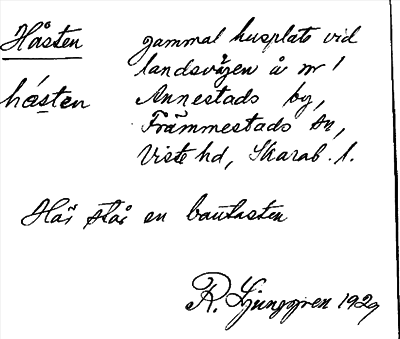 Håsten gammal husplats vid
landsvägen å nr 1
håsten Annestads by,
Främmestads sn,
Viste hd, Skarab. l.
Här står en bautasten
R. Ljunggren 1929